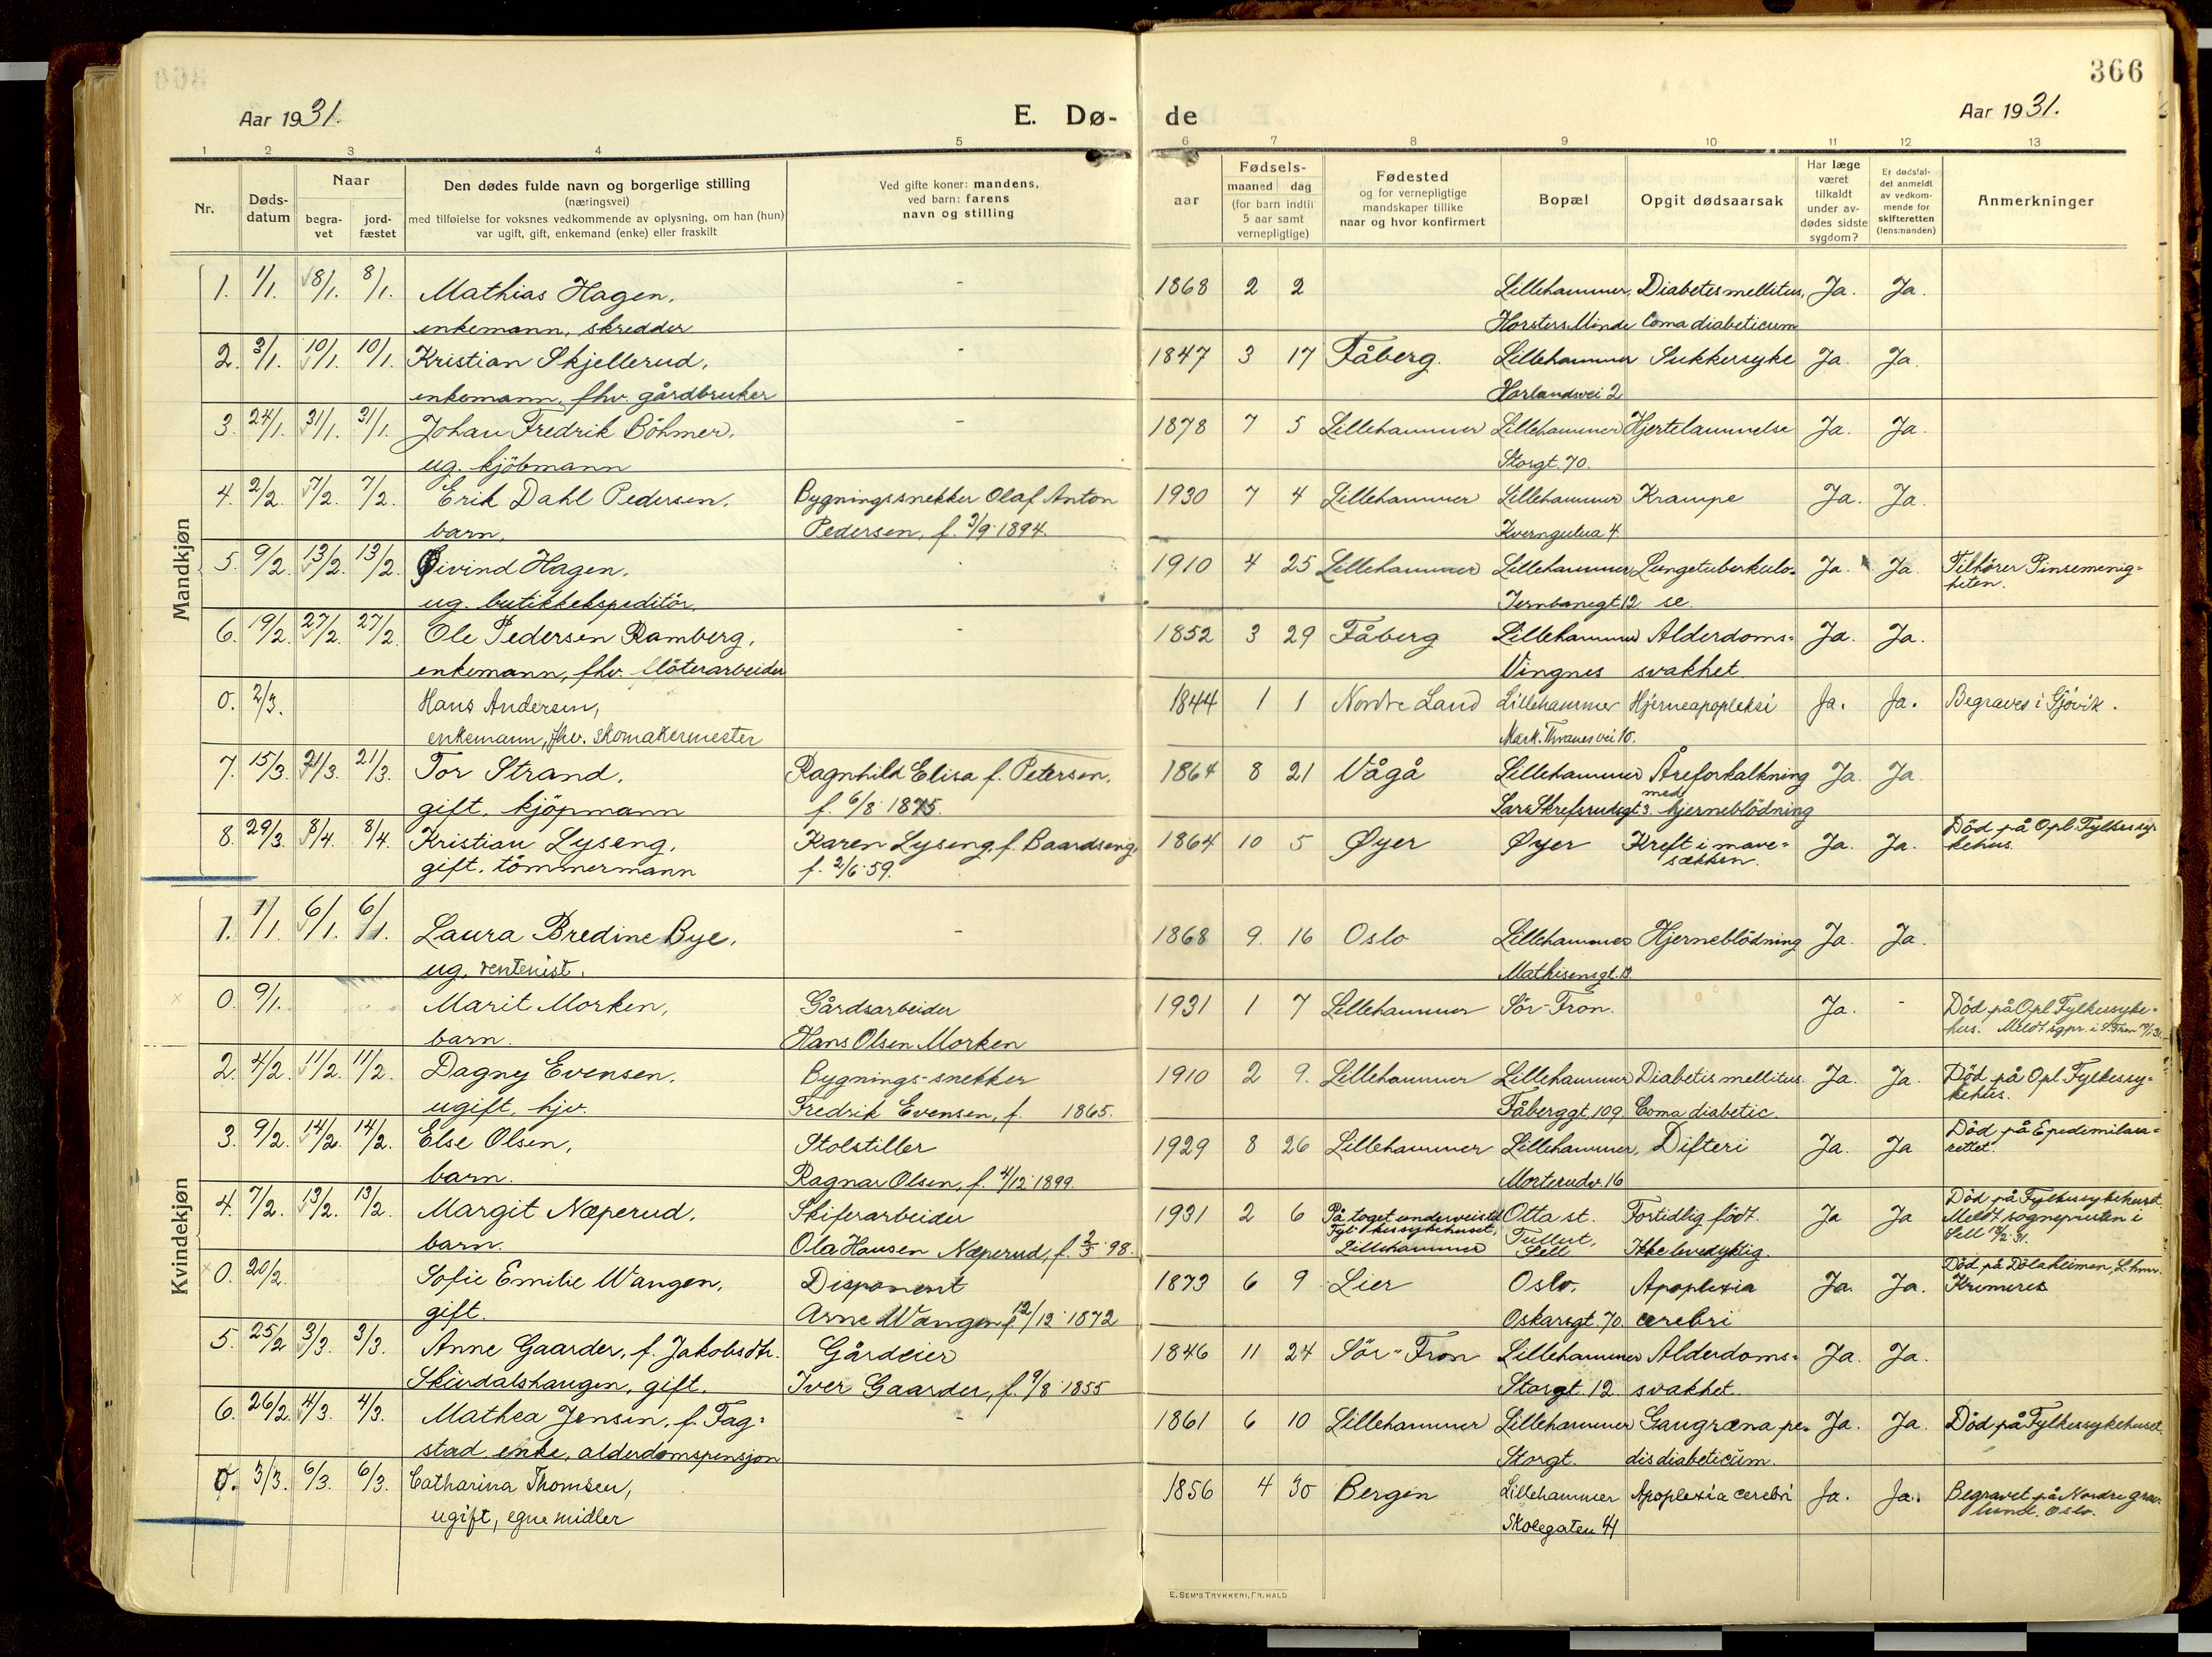 366
Aar 1931.
E. Dø-
de
Aar 1931.
1 2 3 4 5 6 7 8 9 10 11 12 13
Nr.
Døds-
datum
Naar
begra-
vet
jord-
fæstet
Den dødes fulde navn og borgerlige stilling
(næringsvei)
med tilføielse for voksnes vedkommende av oplysning, om han (hun)
var ugift, gift, enkemand (enke) eller fraskilt
Ved gifte koner: mandens,
ved barn: farens
navn og stilling
aar
Fødsels-
maaned dag
(for barn indtil
5 aar samt
vernepligtige)
Fødested
og for vernepligtige
mandskaper tillike
naar og hvor konfirmert
Bopæl
Opgit dødsaarsak
Har læge
været
tilkaldt
under av-
dødes sidste
sygdom?
Er dødsfal-
det anmeldt
av vedkom-
mende for
skifteretten
(lensmanden)
Anmerkninger
Mandkjøn
1. 1/1. 8/1. 8/1. Mathias Hagen, - 1868 2 2 Lillehammer, Diabetes mellitus, Ja. Ja.
enkemann, skredder Horsters Minde Coma diabeticum
2. 3/1. 10/1. 10/1. Kristian Skjellerud, - 1847 3 17 Fåberg. Lillehammer Sukkersyke Ja. Ja.
enkemann, fhv. gårdbruker Horlandsvei 2
3. 24/1. 31/1. 31/1. Johan Fredrik Böhmer, - 1878 7 5 Lillehammer Lillehammer Hjertelammelse Ja. Ja.
ug. kjöbmann Storgt. 70.
4. 2/2. 7/2. 7/2. Erik Dahl Pedersen, Bygningssnekker Olaf Anton 1930 7 4 Lillehammer Lillehammer Krampe Ja. Ja.
barn. Pedersen, f. 3/9 1894. Kverngutua 4.
5. 9/2. 13/2. 13/2. Øivind Hagen, 1910 4 25 Lillehammer Lillehammer Lungetuberkulo- Ja. Ja. Tilhører Pinsemenig-
heten.
ug. butikkekspeditör. Jernbanegt. 12 se.
6. 19/2. 27/2. 27/2. Ole Pedersen Ramberg, - 1852 3 29 Fåberg Lillehammer Alderdoms- Ja. Ja.
enkemann, fhv. flöterarbeider Vingnes svakhet.
0. 2/3. Hans Andersen, 1844 1 1 Nordre Land Lillehammer Hjerneapopleksi Ja. Ja. Begraves i Gjövik.
enkemann, fhv. skomakermester Mark. Thranes vei 10.
7. 15/3. 21/3. 21/3. Tor Strand, Ragnhild Elisa f. Petersen, 1864 8 21 Vågå Lillehammer Åreforkalkning Ja. Ja.
gift. kjöpmann f. 6/8 1875. Lars Skrefsrudsgt. 3. med hjerneblödning
8. 29/3. 8/4. 8/4. Kristian Lyseng, Karen Lyseng, f. Baardseng, 1864 10 5 Øyer Øyer Kreft i mave- Ja. Ja. Död på Opl. Fylkessy-
kehus.
gift. tömmermann f. 2/6 59. sækken.
Kvindekjøn
1. 1/1. 6/1. 6/1. Laura Bredine Bye, - 1868 9. 16 Oslo Lillehammer Hjerneblödning Ja. Ja.
ug. rentenist. Mathisensgt. 13
0. 9/1. Marit Morken, Gårdsarbeider 1931 1 7 Lillehammer Sör-Fron. Ja. - Död på Opl Fylkessyke-
hus. Meldt sgpr. i S. Fron
barn. Hans Olsen Morken
2. 4/2. 11/2. 11/2. Dagny Evensen, Bygnings-snekker 1910 2 9. Lillehammer Lillehammer Diabetis mellitus. Ja. Ja. Död på Opl. Fylkessy-
kehus.
ugift, hjv. Fredrik Evensen, f. 1865. Fåberggt. 109. Coma diabetic.
3. 9/2. 14/2. 14/2. Else Olsen, Stolstiller 1929 8 26 Lillehammer Lillehammer, Difteri Ja. Ja Död på Epedimilasa-
rettet.
barn. Ragnar Olsen, f. 4/12 1899. Morterudv. 16
4. 7/2. 13/2. 13/2. Margit Næperud, Skiferarbeider 1931 2 6 På toget underveis til Otta st. Fortidlig födt. Ja Ja Död på Fylkessykehuset.
Fylkessykehuset, Meldt sognepresten i
barn. Ola Hansen Næperud, f. 2/3 98. Lillehammer Sell Ikke levedyktig. Sell
0. 20/2. Sofie Emilie Wangen, Disponent 1873 6 9 Lier Oslo, Apoplexia Ja. Ja. Död på Dölaheimen, L.hmr.
Kremeres
gift. Arne Wangen f. 12/12 1872 Oskarsgt. 70 cerebri
5. 25/2 3/3. 3/3. Anne Gaarder, f. Jakobsdtr. Gårdeier 1846 11 24 Sör-Fron Lillehammer Alderdoms- Ja. Ja.
Skurdalshaugen, gift. Iver Gaarder, f. 9/8 1855 Storgt. 12. svakhet.
6. 26/2. 4/3. 4/3. Mathea Jensen, f. Fag- - 1861 6 10 Lillehammer Lillehammer Gangræna pe- Ja. Ja. Död på Fylkessykehuset.
stad enke, alderdomspensjon Storgt. dis diabeticum.
0. 3/3. 6/3. 6/3. Catharina Thomsen, 1856 4 30 Bergen Lillehammer Apoplexia cerebri Ja. Ja. Begravet på Nordre grav-
lund. Oslo.
ugift, egne midler Skolegaten 41
E. SEM'S TRYKKERI, FR.HALD